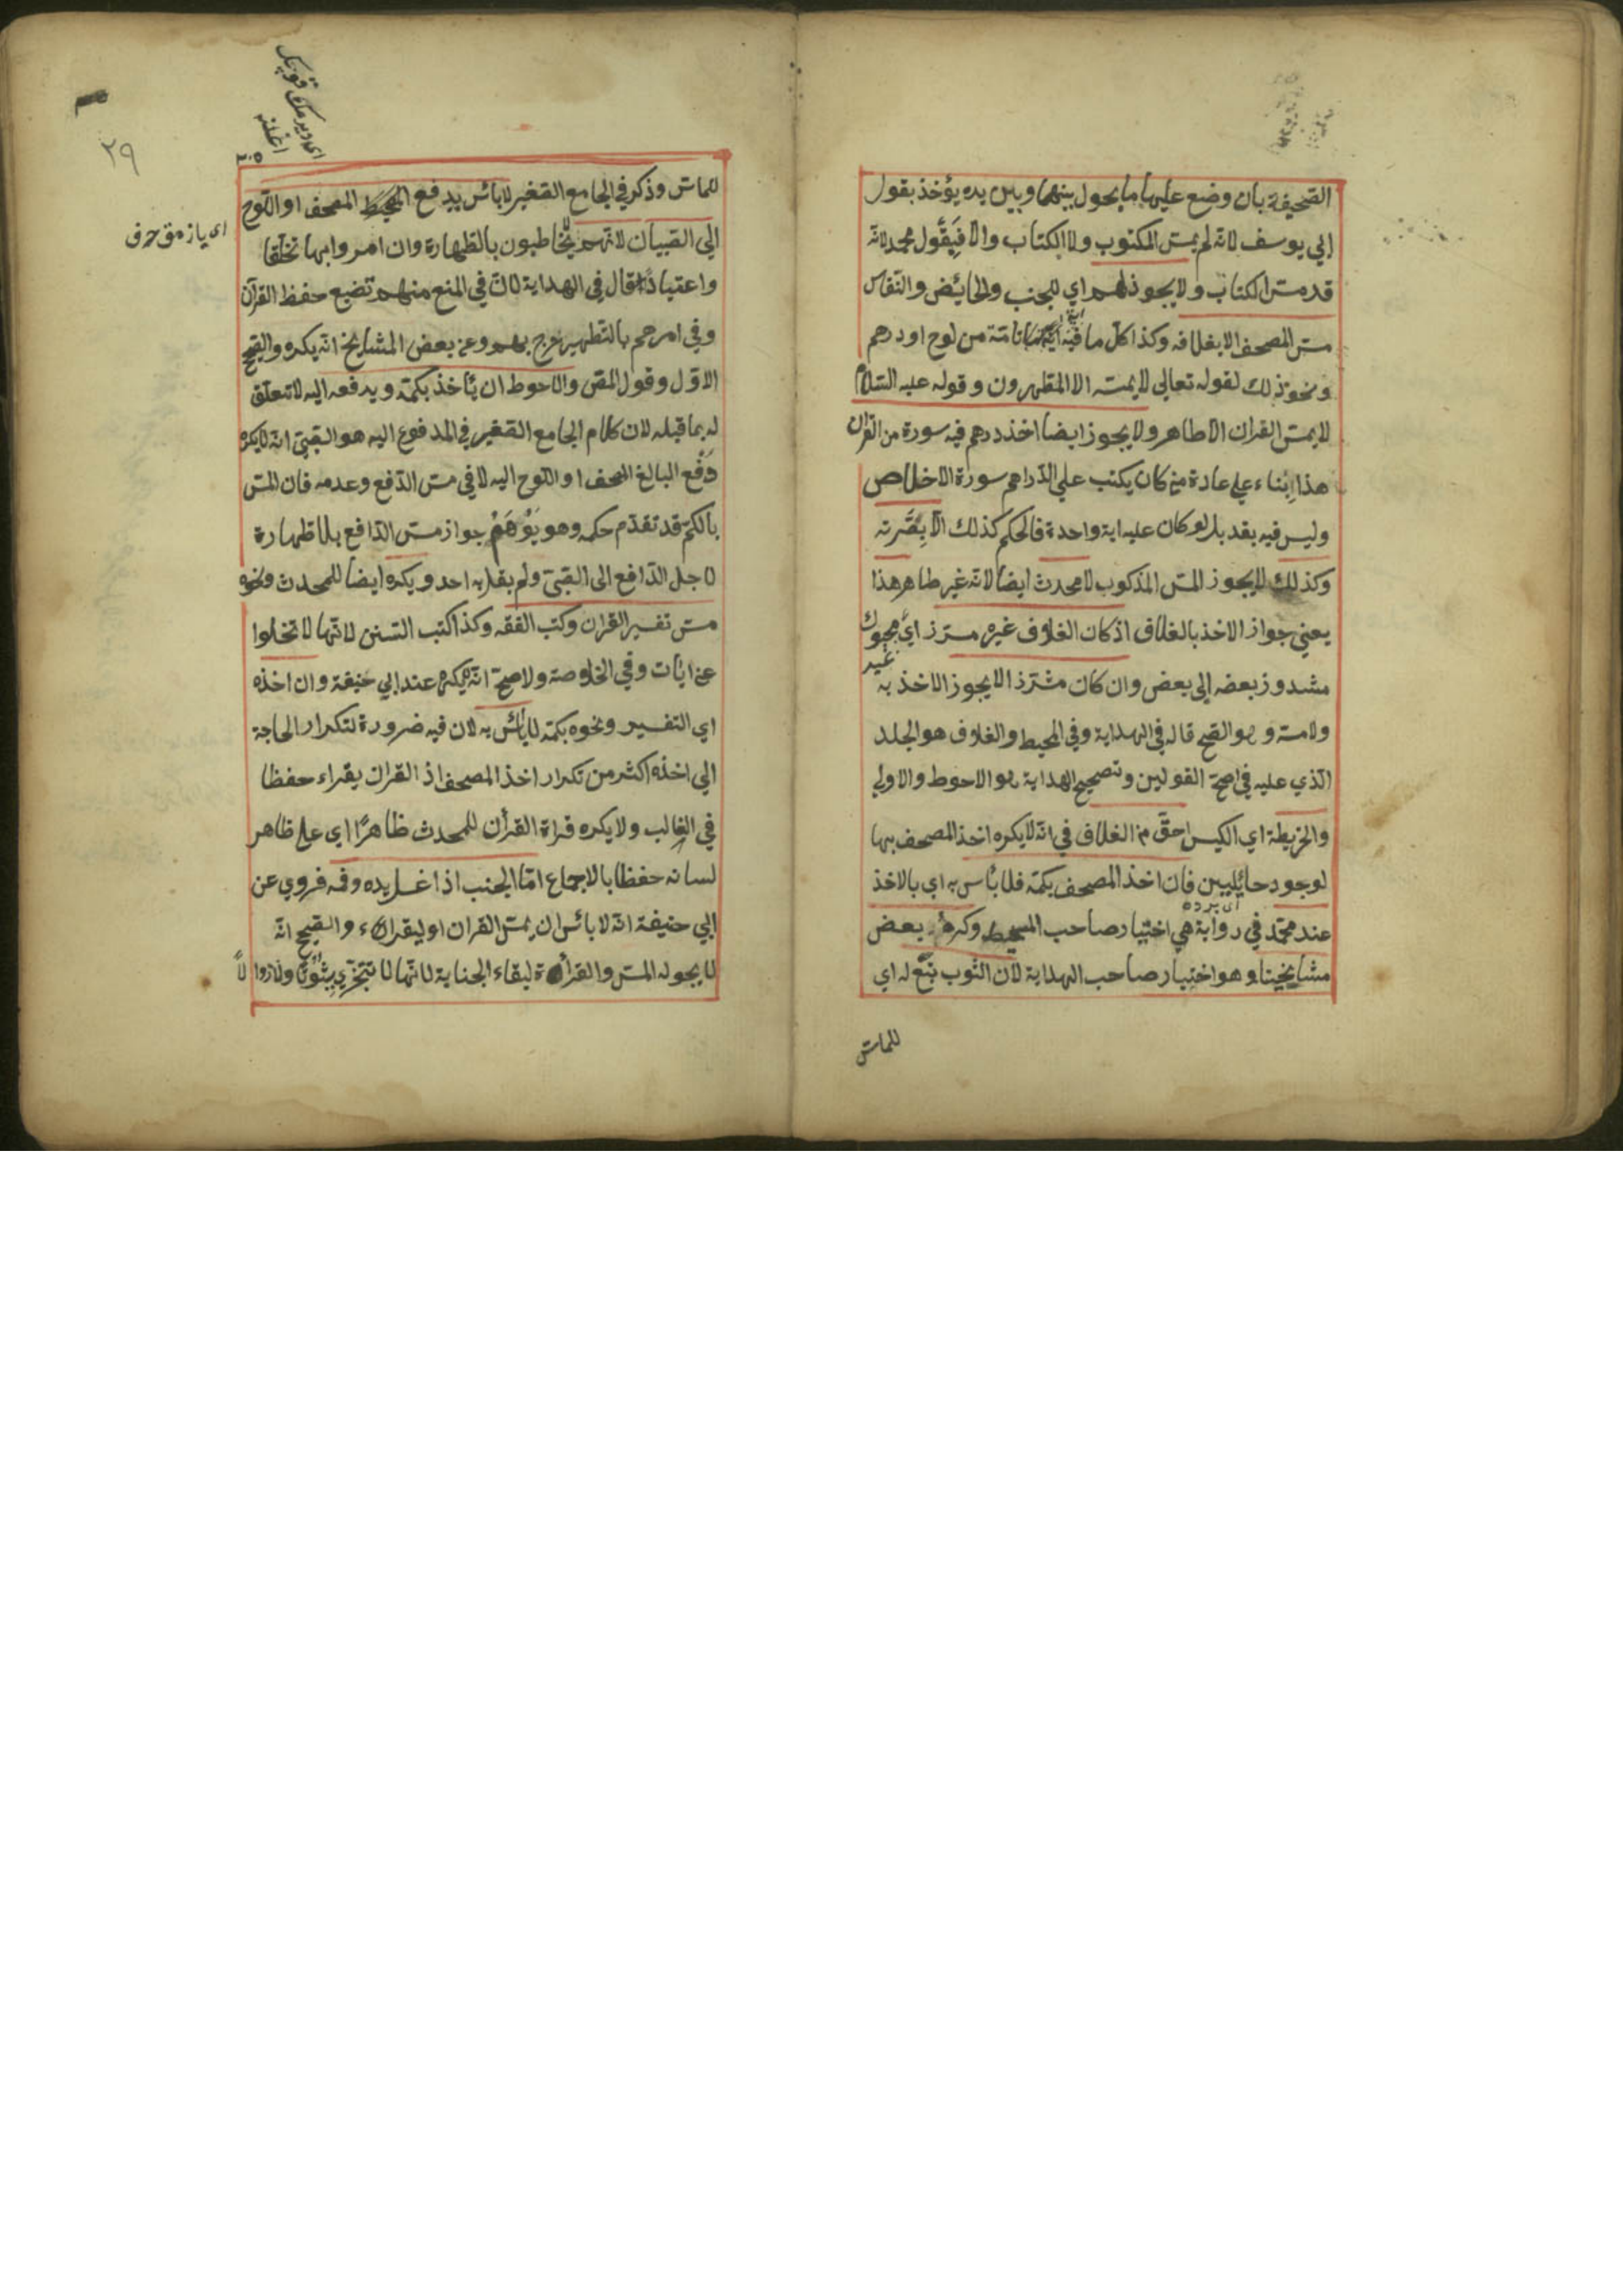 الصحيفة بان وضع عليها ما يحول بينهما وبين يده يؤخذ بقول
ابي يوسف لانه لم يمس المكتوب ولا الكتاب والا فيقول محمد لانه
قد مس الكتاب ولا يجوز لهم اي للجنب والحائض والنفاس
مس المصحف الا بغلافه وكذا كل ما فيه آية تامة من لوح او درهم
ونحو ذلك لقوله تعالي لا يمسه الا المطهرون وقوله عليه السلام
لا يمس القران الا طاهر ولا يجوز ايضا اخذ درهم فيه سورة من القران
هذا بناء علي عادة من كان يكتب علي الدراهم سورة الاخلاص
وليس فيه بقد بل لو كان عليه اية واحدة فالحكم كذلك الا بصرته
وكذلك لا يجوز المس المذكوب لا محدث ايضا لانه غير طاهر هذا
يعني جواز الاخذ بالغلاف اذ كان الغلاف غيره مسرز اي محبوك
غير
مشدوز بعضه الي بعض وان كان مشرز الا يجوز الاخذ به
ولا مسه وهو الصحيح قاله في الهداية وفي المحيط والغلاف هو الجلد
الذي عليه في اصح القولين وتصحيح الهداية هو الاحوط والاولي
والخريطة اي الكيس احق من الغلاف في انه لا يكره اخذ المصحف بها
لوجود حائليين فان اخذ المصحف بكمه فلا باس به اي بالاخذ
عند محمد في رواية هي اختيار صاحب المحيط وكره بعض
مشايخينا وهو اختيار صاحب الهداية لان الثوب تبع له اي
للماس
٢٩
للماس وذكر في الجامع الصغير لا بائس بدفع المصحف او اللوح
الي الصبيان لانهم لا يخاطبون بالطهارة وان امروا بها تخلقا
اى يازمق حرف
واعتبادا قال في الهداية لان في المنع منهم تضيع حفظ القرآن
وفي امرهم بالتطهير حرج بهم وعن بعض المشايخ انه يكره والصحيح
الاول وقول المص والاحوط ان يأخذ بكمه ويدفعه اليه لا تعلق
له بما قبله لان كلام الجامع الصغير في المدفوع اليه هو الصبي انه لا يكره
دفع البالغ المصحف او اللوح اليه لا في مس الدافع وعدمه فان المس
بالكم قد تقدم حكمه وهو يوهم جواز مس الدافع بلا طهارة
لاجل الدافع الى الصبي ولم يقل به احد ويكره ايضا للمحدث ونحوه
مس تفسير القران وكتب الفقه وكذا كتب السنن لانها لا تخلوا
عن ايات وفي الخلاصة ولاصح انه لا يكره عند ابي حنيفة وان اخذه
اي التفسير ونحوه بكمه لا بأس به لان فيه ضرورة لتكرار الحاجة
الي اخذه اكثر من تكرار اخذ المصحف اذ القران يقراء حفظا
في الغالب ولا يكره قراة القرأن للمحدث ظاهرا اي علي ظاهر
لسانه حفظا بالاجماع اما الجنب اذا غسل يده وفمه فروي عن
ابي حنيفة انه لا بائس ان يمس القران او ليقراء والصحيح انه
لا يجوله المس والقرأة لبقاء الجناية لانها لا تتجزي ثبوتا ولا زوالا